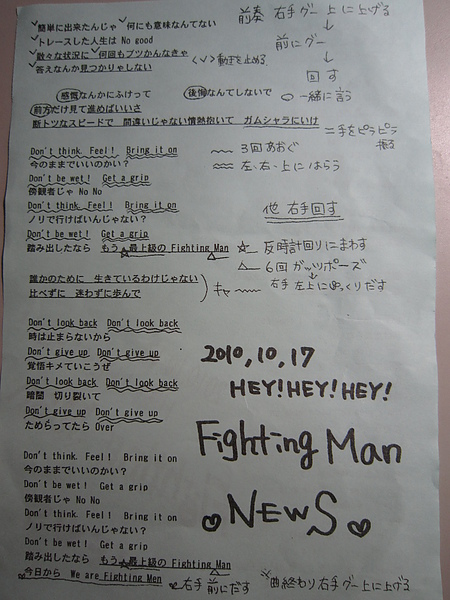 前奏 右手グー 上に上げる
↓
前にグー
↓
回す
✓簡単に出来たんじゃ ✓何にも意味なんてない
✓トレースした人生は No good
✓散々な状況に ✓何回もブツかんなきゃ
答えなんか見つかりゃしない
<✓> 動きを止める
感慨なんかにふけって 後悔なんてしないで
○一緒に言う
前方だけ見て進めばいいさ
断トツなスピードで 間違いじゃない情熱抱いて ガムシャラにいけ
=手をピラピラ振る
Don't think. Feel! Bring it on
3回あおぐ
今のままでいいのかい?
左、右、上にはらう
Don't be wet! Get a grip
傍観者じゃ No No
Don't think. Feel! Bring it on
他 右手回す
ノリで行けばいんじゃない?
Don't be wet! Get a grip
踏み出したなら もう☆最上級の Fighting Man
☆ 反時計回りにまわす
△ 6回ガッツポーズ
誰かのために 生きているわけじゃない
比べずに 迷わずに歩んで
キャ〜 右手 左上にゆっくりだす
Don't look back Don't look back
時は止まらないから
Don't give up Don't give up
覚悟キメていこうぜ
Don't look back Don't look back
暗闇 切り裂いて
Don't give up Don't give up
ためらってたら Over
2010,10,17
HEY!HEY!HEY!
Fighting Man
NEWS
Don't think. Feel! Bring it on
今のままでいいのかい?
Don't be wet! Get a grip
傍観者じゃ No No
Don't think. Feel! Bring it on
ノリで行けばいんじゃない?
Don't be wet! Get a grip
踏み出したなら もう☆最上級の Fighting Man
今日から We are Fighting Men
右手 前にだす
曲終わり 右手グー上に上げる